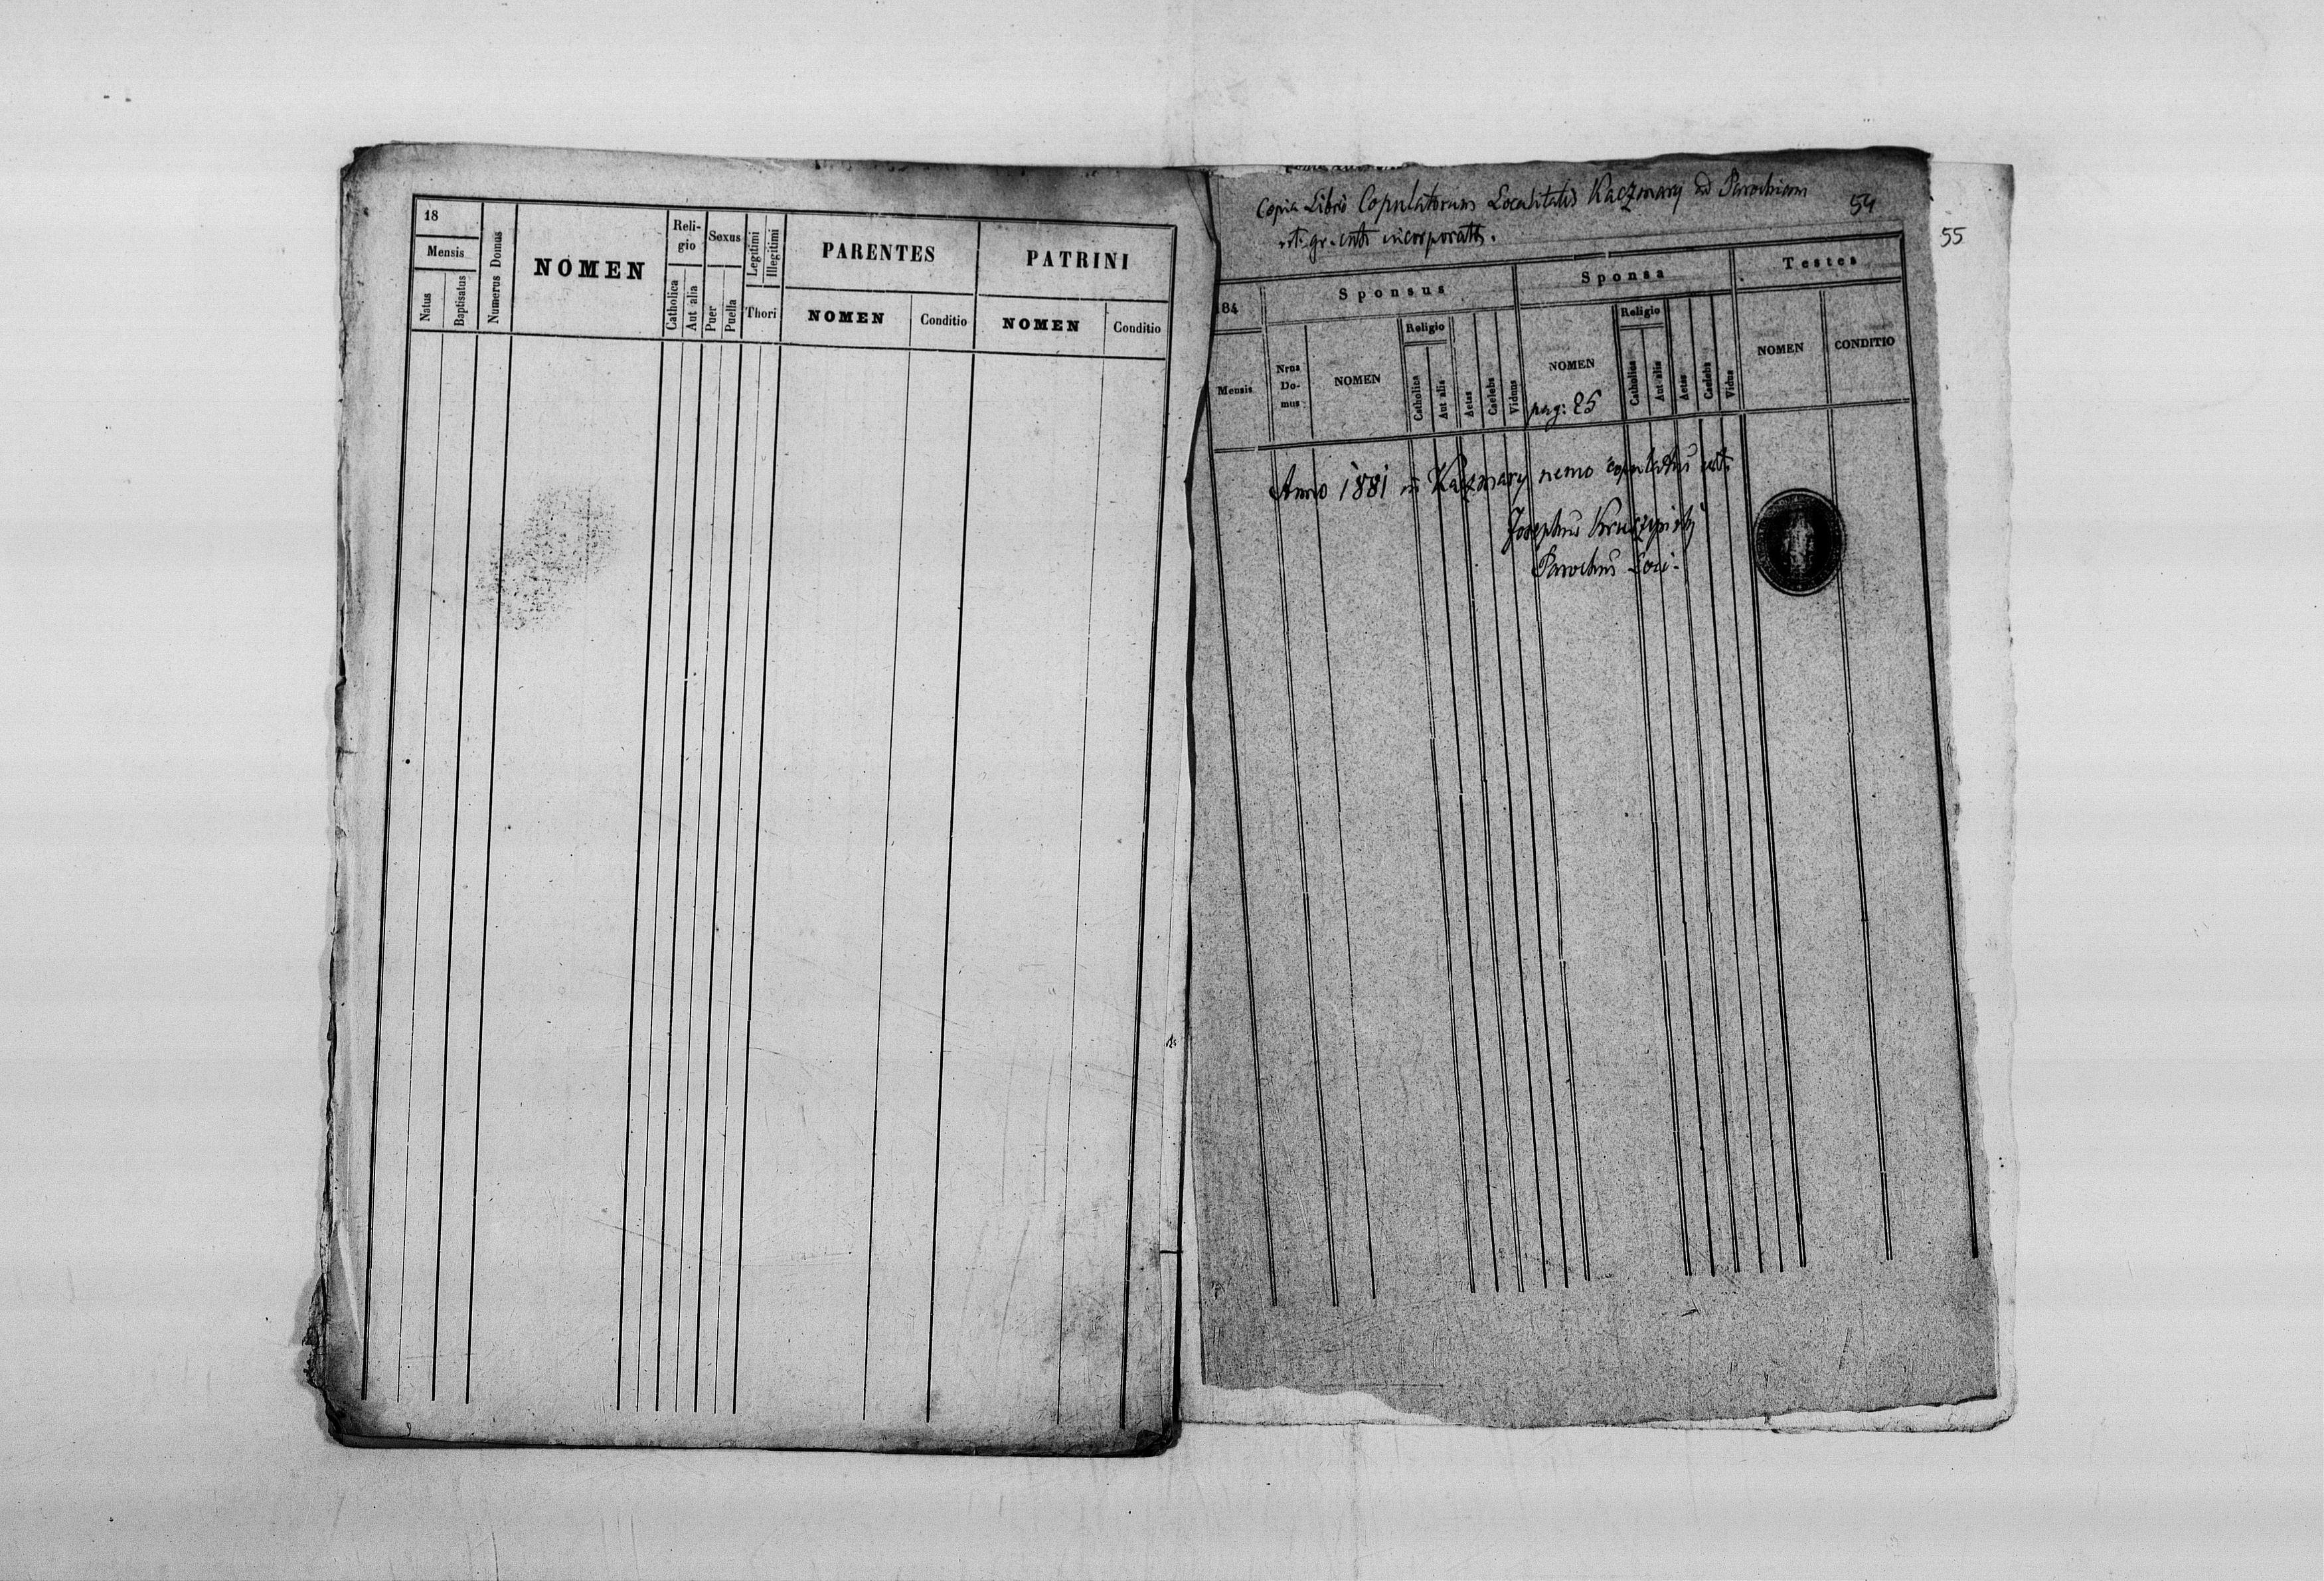 18
Mensis
Natus
Baptisatus
Numerus Domus
NOMEN
Reli-
gio
Catholica
Aut alia
Sexus
Puer
Puella
Legitimi
Illegitimi
Thori
PARENTES
NOMEN
Conditio
PATRINI
NOMEN
Conditio
Copia Libri Copulatorum Localitatis Kaczmary ad Parochiam
rit. gr. incorporatæ.
54
55
184
Mensis
Sponsus
Nrus
Do-
mus
NOMEN
Religio
Catholica
Aut alia
Aetas
Caelebs
Viduus
Sponsa
NOMEN
pag: 25
Religio
Catholica
Aut alia
Aetas
Caelebs
Vidua
Testes
NOMEN
CONDITIO
Anno 1881 in Kaczmary nemo copulatus est.
Josephus
Parochus Loci.